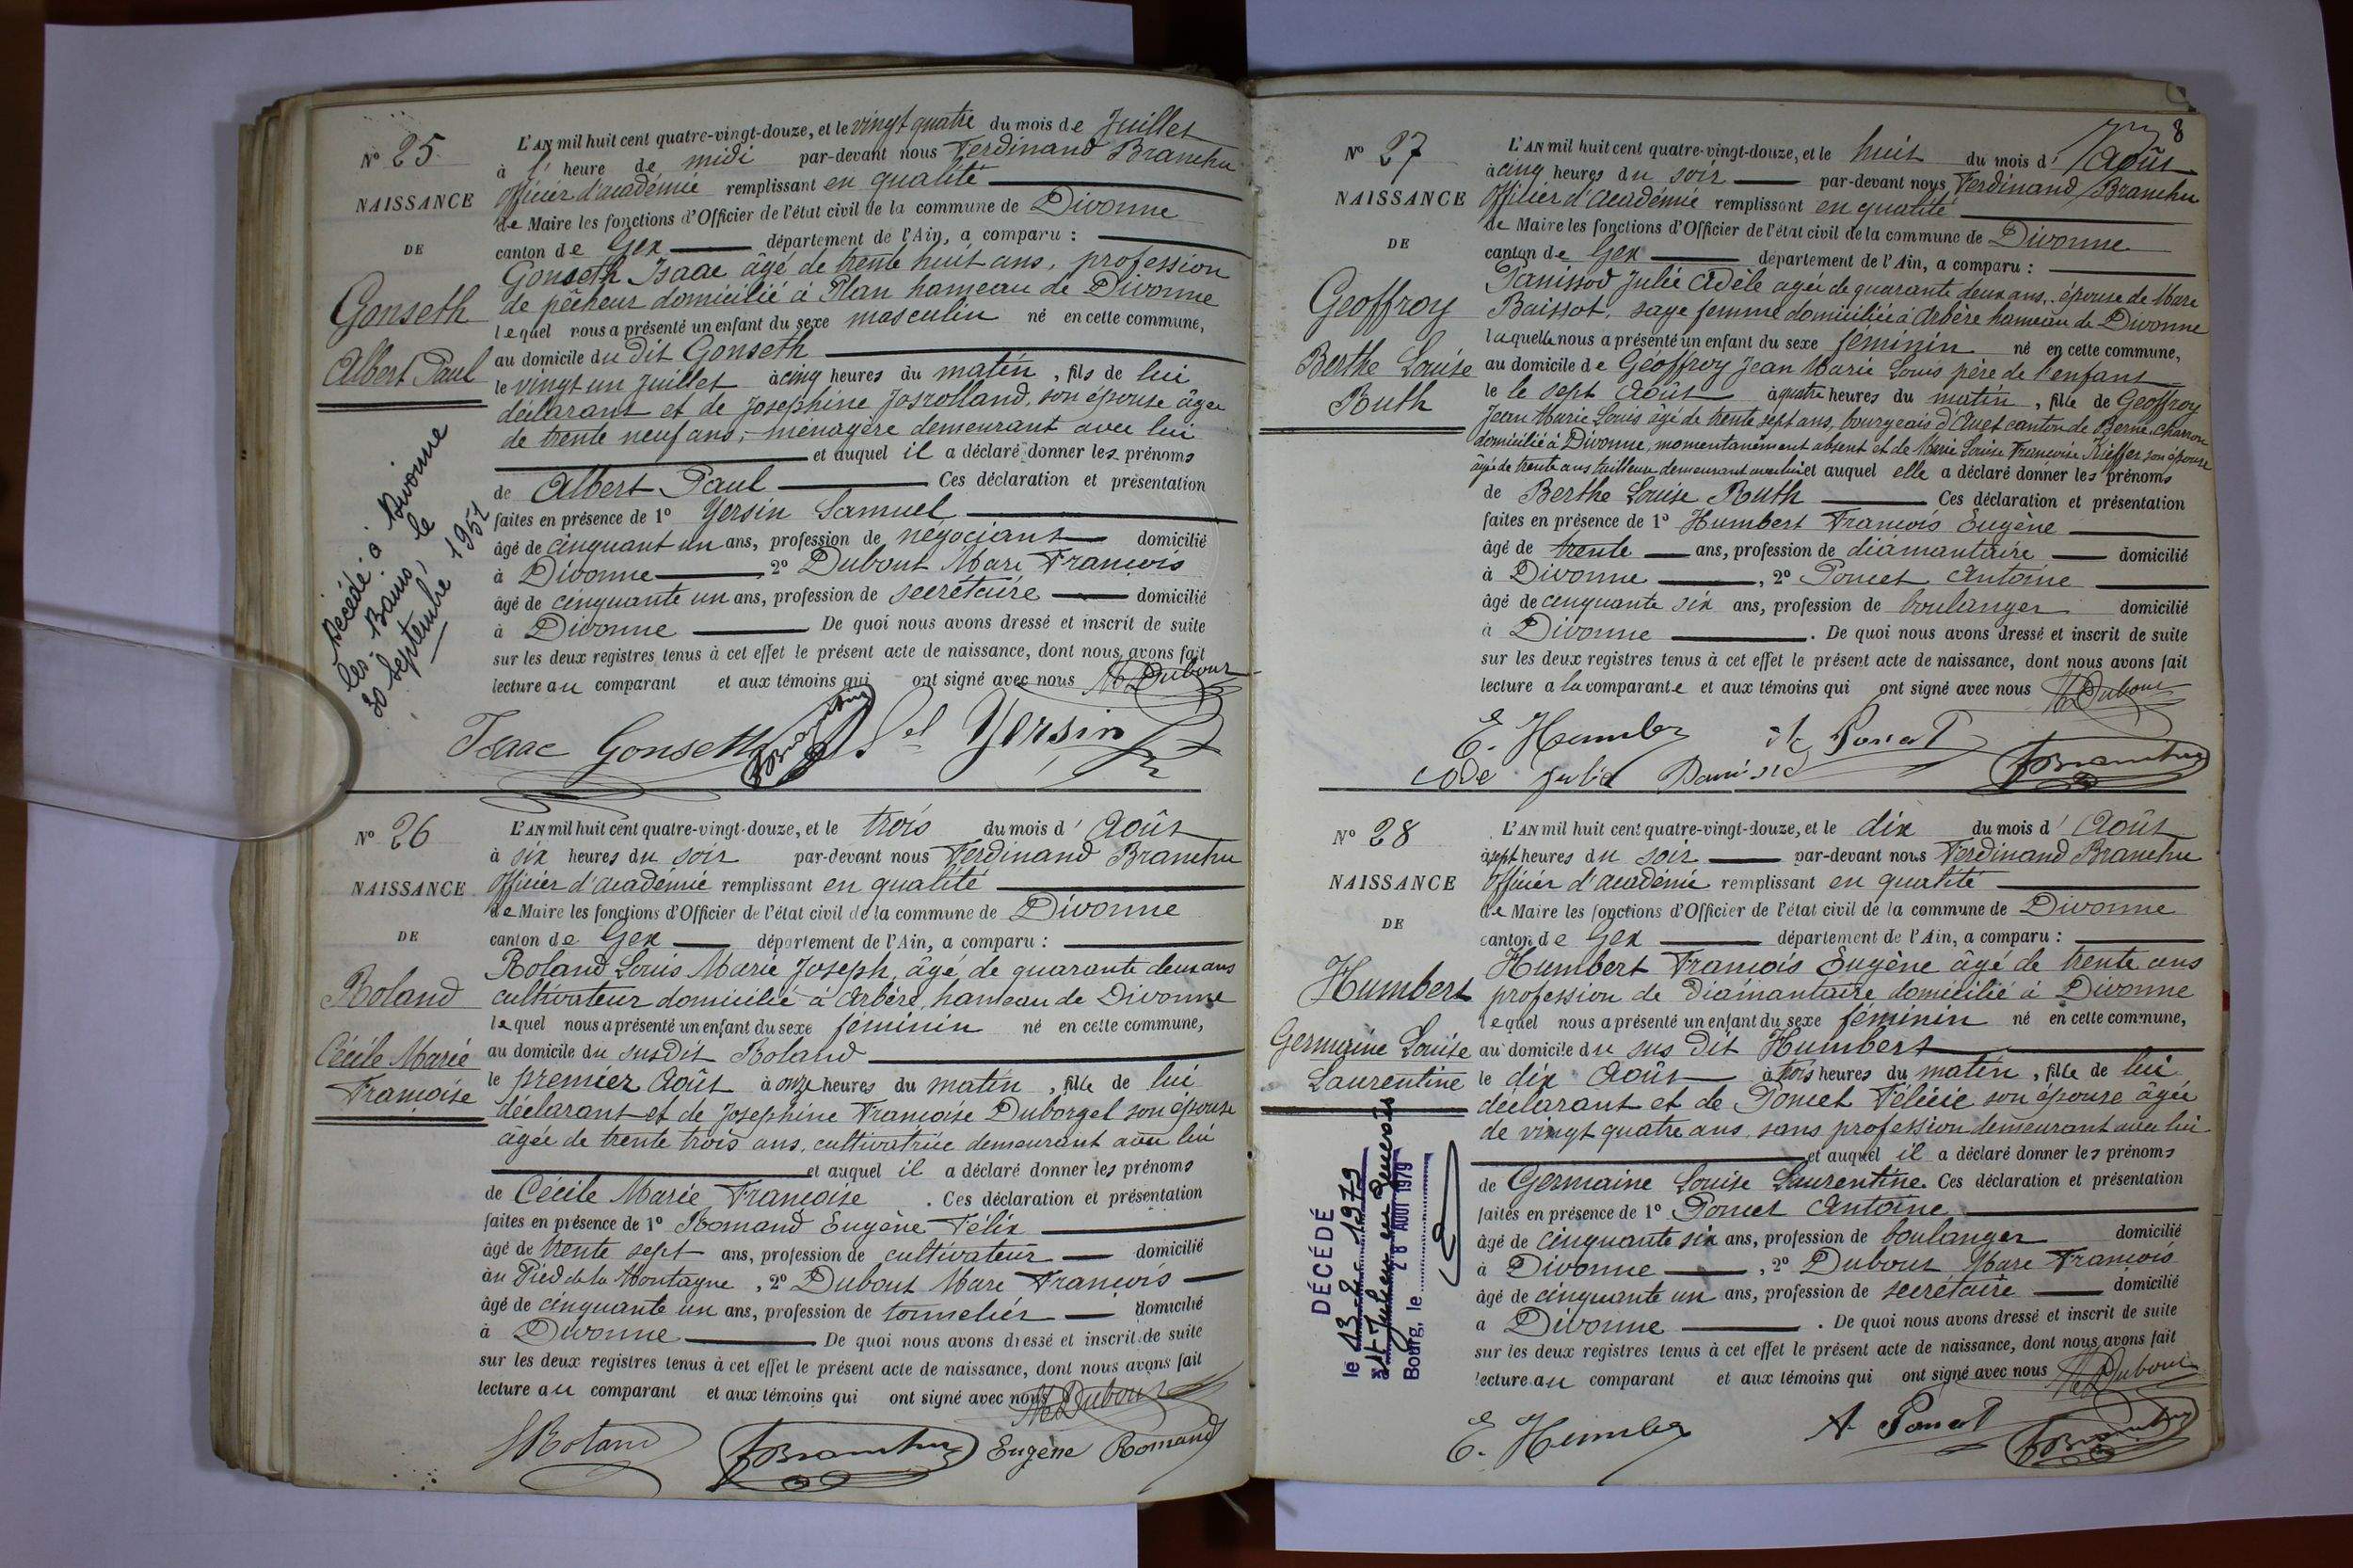 N° 25
NAISSANCE
DE
Gonseth
Albert Paul
Décédé à Divonne
les Bains, le
30 septembre 1951
L'AN mil huit cent quatre-vingt-douze, et le vingt quatre du mois de Juillet
à l'heure de midi par-devant nous Ferdinand Branchu
Officier d'académie remplissant en qualité
de Maire les fonctions d'Officier de l'état civil de la commune de Divonne
canton de Gex département de l'Ain, a comparu :
Gonseth Isaac âgé de trente huit ans, profession
de pêcheur domicilié à Plan hameau de Divonne
lequel nous a présenté un enfant du sexe masculin né en cette commune,
au domicile du dit Gonseth
le vingt un Juillet à cinq heures du matin, fils de lui
déclarant et de Josephine Josrolland, son épouse âgée
de trente neuf ans, ménagère demeurant avec lui
et auquel il a déclaré donner les prénoms
de Albert Paul Ces déclaration et présentation
faites en présence de 1° Yersin Samuel
âgé de cinquant un ans, profession de négociant domicilié
à Divonne, 2° Dubout Marc François
âgé de cinquante un ans, profession de secrétaire domicilié
à Divonne De quoi nous avons dressé et inscrit de suite
sur les deux registres tenus à cet effet le présent acte de naissance, dont nous avons fait
lecture au comparant et aux témoins qui ont signé avec nous M Dubout
Isaac Gonseth Branchu Sel Yersin
N° 26
NAISSANCE
DE
Roland
Cécile Marie
Françoise
L'AN mil huit cent quatre-vingt-douze, et le trois du mois d'Août
à six heures du soir par-devant nous Ferdinand Branchu
Officier d'académie remplissant en qualité
de Maire les fonctions d'Officier de l'état civil de la commune de Divonne
canton de Gex département de l'Ain, a comparu :
Roland Louis Marie Joseph, âgé de quarante deux ans
cultivateur domicilié à Arbère, hameau de Divonne
lequel nous a présenté un enfant du sexe féminin né en cette commune,
au domicile du susdit Roland
le premier Août à onze heures du matin, fille de lui
déclarant et de Josephine Françoise Duborgel son épouse
âgée de trente trois ans, cultivatrice demeurant avec lui
et auquel il a déclaré donner les prénoms
de Cécile Marie Françoise. Ces déclaration et présentation
faites en présence de 1° Romand Eugène Félix
âgé de trente sept ans, profession de cultivateur domicilié
au Pied de la Montagne, 2° Dubout Marc François
âgé de cinquante un ans, profession de tonnelier domicilié
à Divonne De quoi nous avons dressé et inscrit de suite
sur les deux registres tenus à cet effet le présent acte de naissance, dont nous avons fait
lecture au comparant et aux témoins qui ont signé avec nous M Dubout
Roland Branchu Eugène Romand
8
N° 27
NAISSANCE
DE
Geoffroy
Berthe Louise
Ruth
L'AN mil huit cent quatre-vingt-douze, et le huit du mois d'Août
à cinq heures du soir par-devant nous Ferdinand Branchu
Officier d'Académie remplissant en qualité
de Maire les fonctions d'Officier de l'état civil de la commune de Divonne
canton de Gex département de l'Ain, a comparu :
Panissod Julie Adèle agée de quarante deux ans, épouse de Marc
Baissot, sage femme domiciliée à Arbère hameau de Divonne
laquelle nous a présenté un enfant du sexe féminin né en cette commune,
au domicile de Géoffroy Jean Marie Louis père de l'enfant
le le sept Août à quatre heures du matin, fille de Geoffroy
Jean Marie Louis âgé de trente sept ans, bourgeois d'Anet canton de Berne, charron
domicilié à Divonne, momentanément absent et de Marie Louise Françoise Kieffer son épouse
âgée de trente ans tailleuse demeurant avec lui et auquel elle a déclaré donner les prénoms
de Berthe Louise Ruth Ces déclaration et présentation
faites en présence de 1° Humbert François Eugène
âgé de trente ans, profession de diamantaire domicilié
à Divonne, 2° Poncet Antoine
âgé de cinquante six ans, profession de boulanger domicilié
à Divonne. De quoi nous avons dressé et inscrit de suite
sur les deux registres tenus à cet effet le présent acte de naissance, dont nous avons fait
lecture a la comparante et aux témoins qui ont signé avec nous M Dubout
E. Humber A Poncet
Julie Branchu
N° 28
NAISSANCE
DE
Humbert
Germaine Louise
Laurentine
DÉCÉDÉ
le 13-8-1979
à St Julien en Genevois
Bourg, le 28 AOUT 1979
L'AN mil huit cent quatre-vingt-douze, et le dix du mois d'Août
à sept heures du soir par-devant nous Ferdinand Branchu
Officier d'académie remplissant en qualité
de Maire les fonctions d'Officier de l'état civil de la commune de Divonne
canton de Gex département de l'Ain, a comparu :
Humbert François Eugène âgé de trente ans
profession de diamantaire domicilié à Divonne
lequel nous a présenté un enfant du sexe féminin né en cette commune,
au domicile du sus dit Humbert
le dix Août à trois heures du matin, fille de lui
déclarant et de Poncet Félicie son épouse âgée
de vingt quatre ans, sans profession demeurant avec lui
et auquel il a déclaré donner les prénoms
de Germaine Louise Laurentine. Ces déclaration et présentation
faites en présence de 1° Poncet Antoine
âgé de cinquante six ans, profession de boulanger domicilié
à Divonne, 2° Dubout Marc François
âgé de cinquante un ans, profession de secrétaire domicilié
a Divonne. De quoi nous avons dressé et inscrit de suite
sur les deux registres tenus à cet effet le présent acte de naissance, dont nous avons fait
lecture au comparant et aux témoins qui ont signé avec nous M Dubout
E. Humber A Poncet Branchu